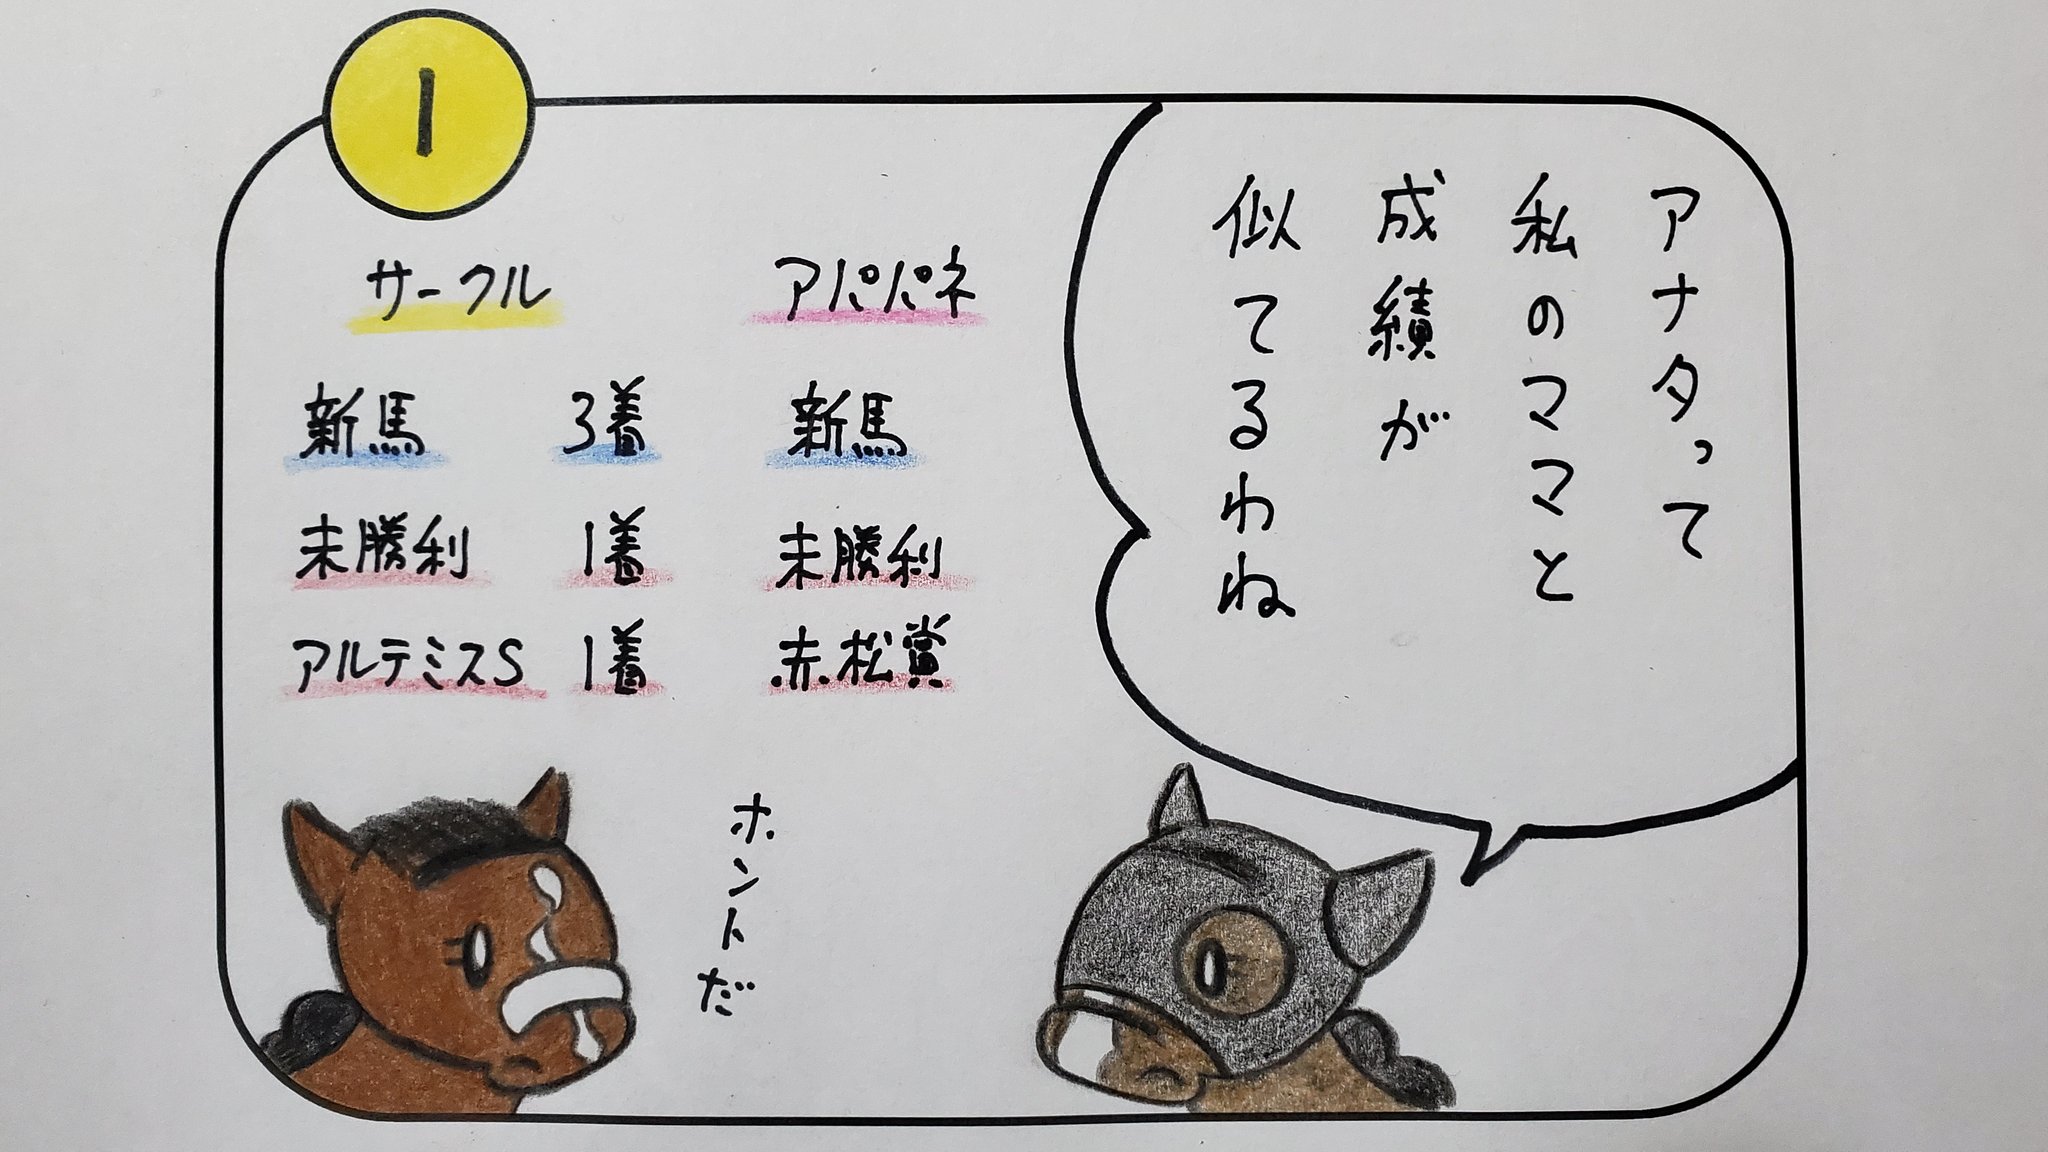 1
アナタって
私のママと
成績が
似てるわね
サークル アパパネ
新馬 3着 新馬
未勝利 1着 未勝利
アルテミスS 1着 赤松賞
ホントだ